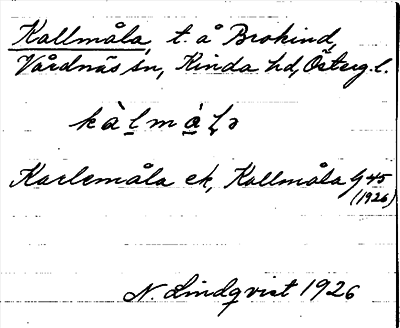 Kallmåla, t. å Brokind,
Vårdnäs sn, Kinda hd, Österg. l.
kàlmàlə
Karlemåla ek, Kallmåla G 45
(1926)
N. Lindqvist 1926